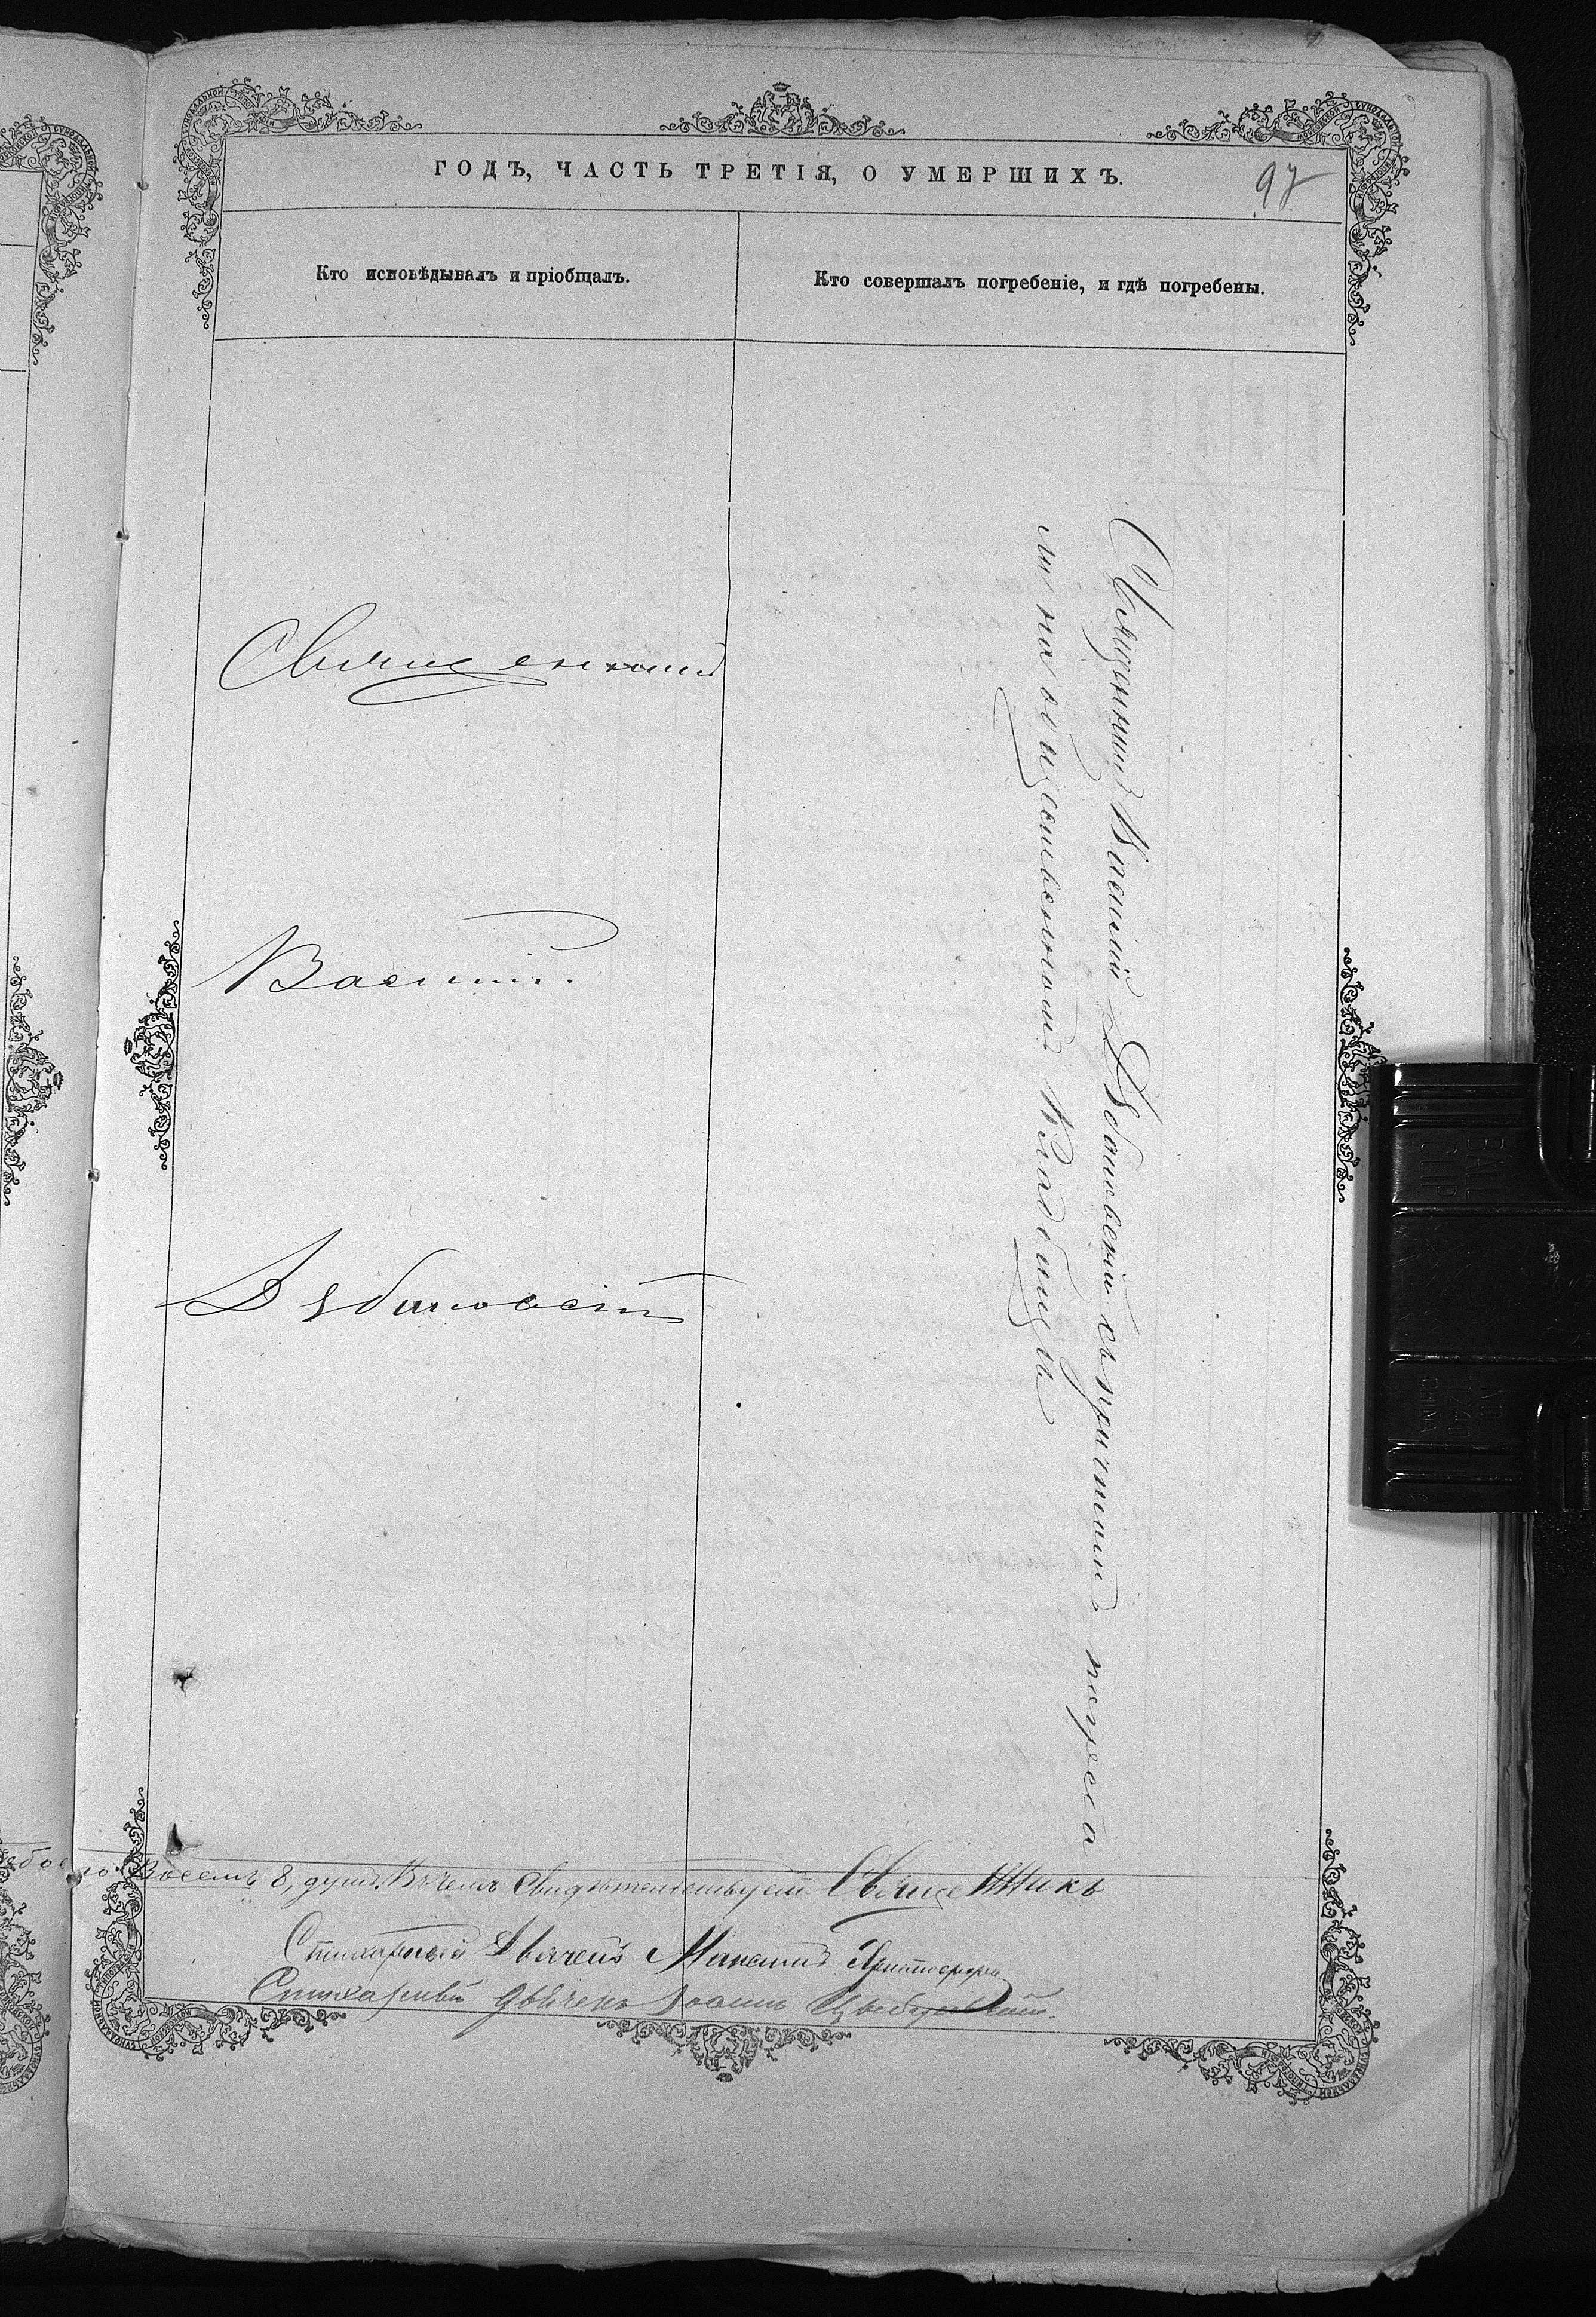 ГОДЪ, ЧАСТЬ ТРЕТІЯ, О УМЕРШИХЪ.
97
Кто исповѣдывалъ и пріобщалъ.
Кто совершалъ погребеніе, и гдѣ погребены.
Священникъ
Василій
Дубиновскій
Священникъ Василій Дубиновскій съ причтомъ погребалъ
на общественномъ кладбищѣ
Восемь 8, душъ. Въ чемъ свидѣтельствуетъ Священникъ
Стихарный Дьячекъ Максимъ
Стихарный дьячекъ Іоаннъ